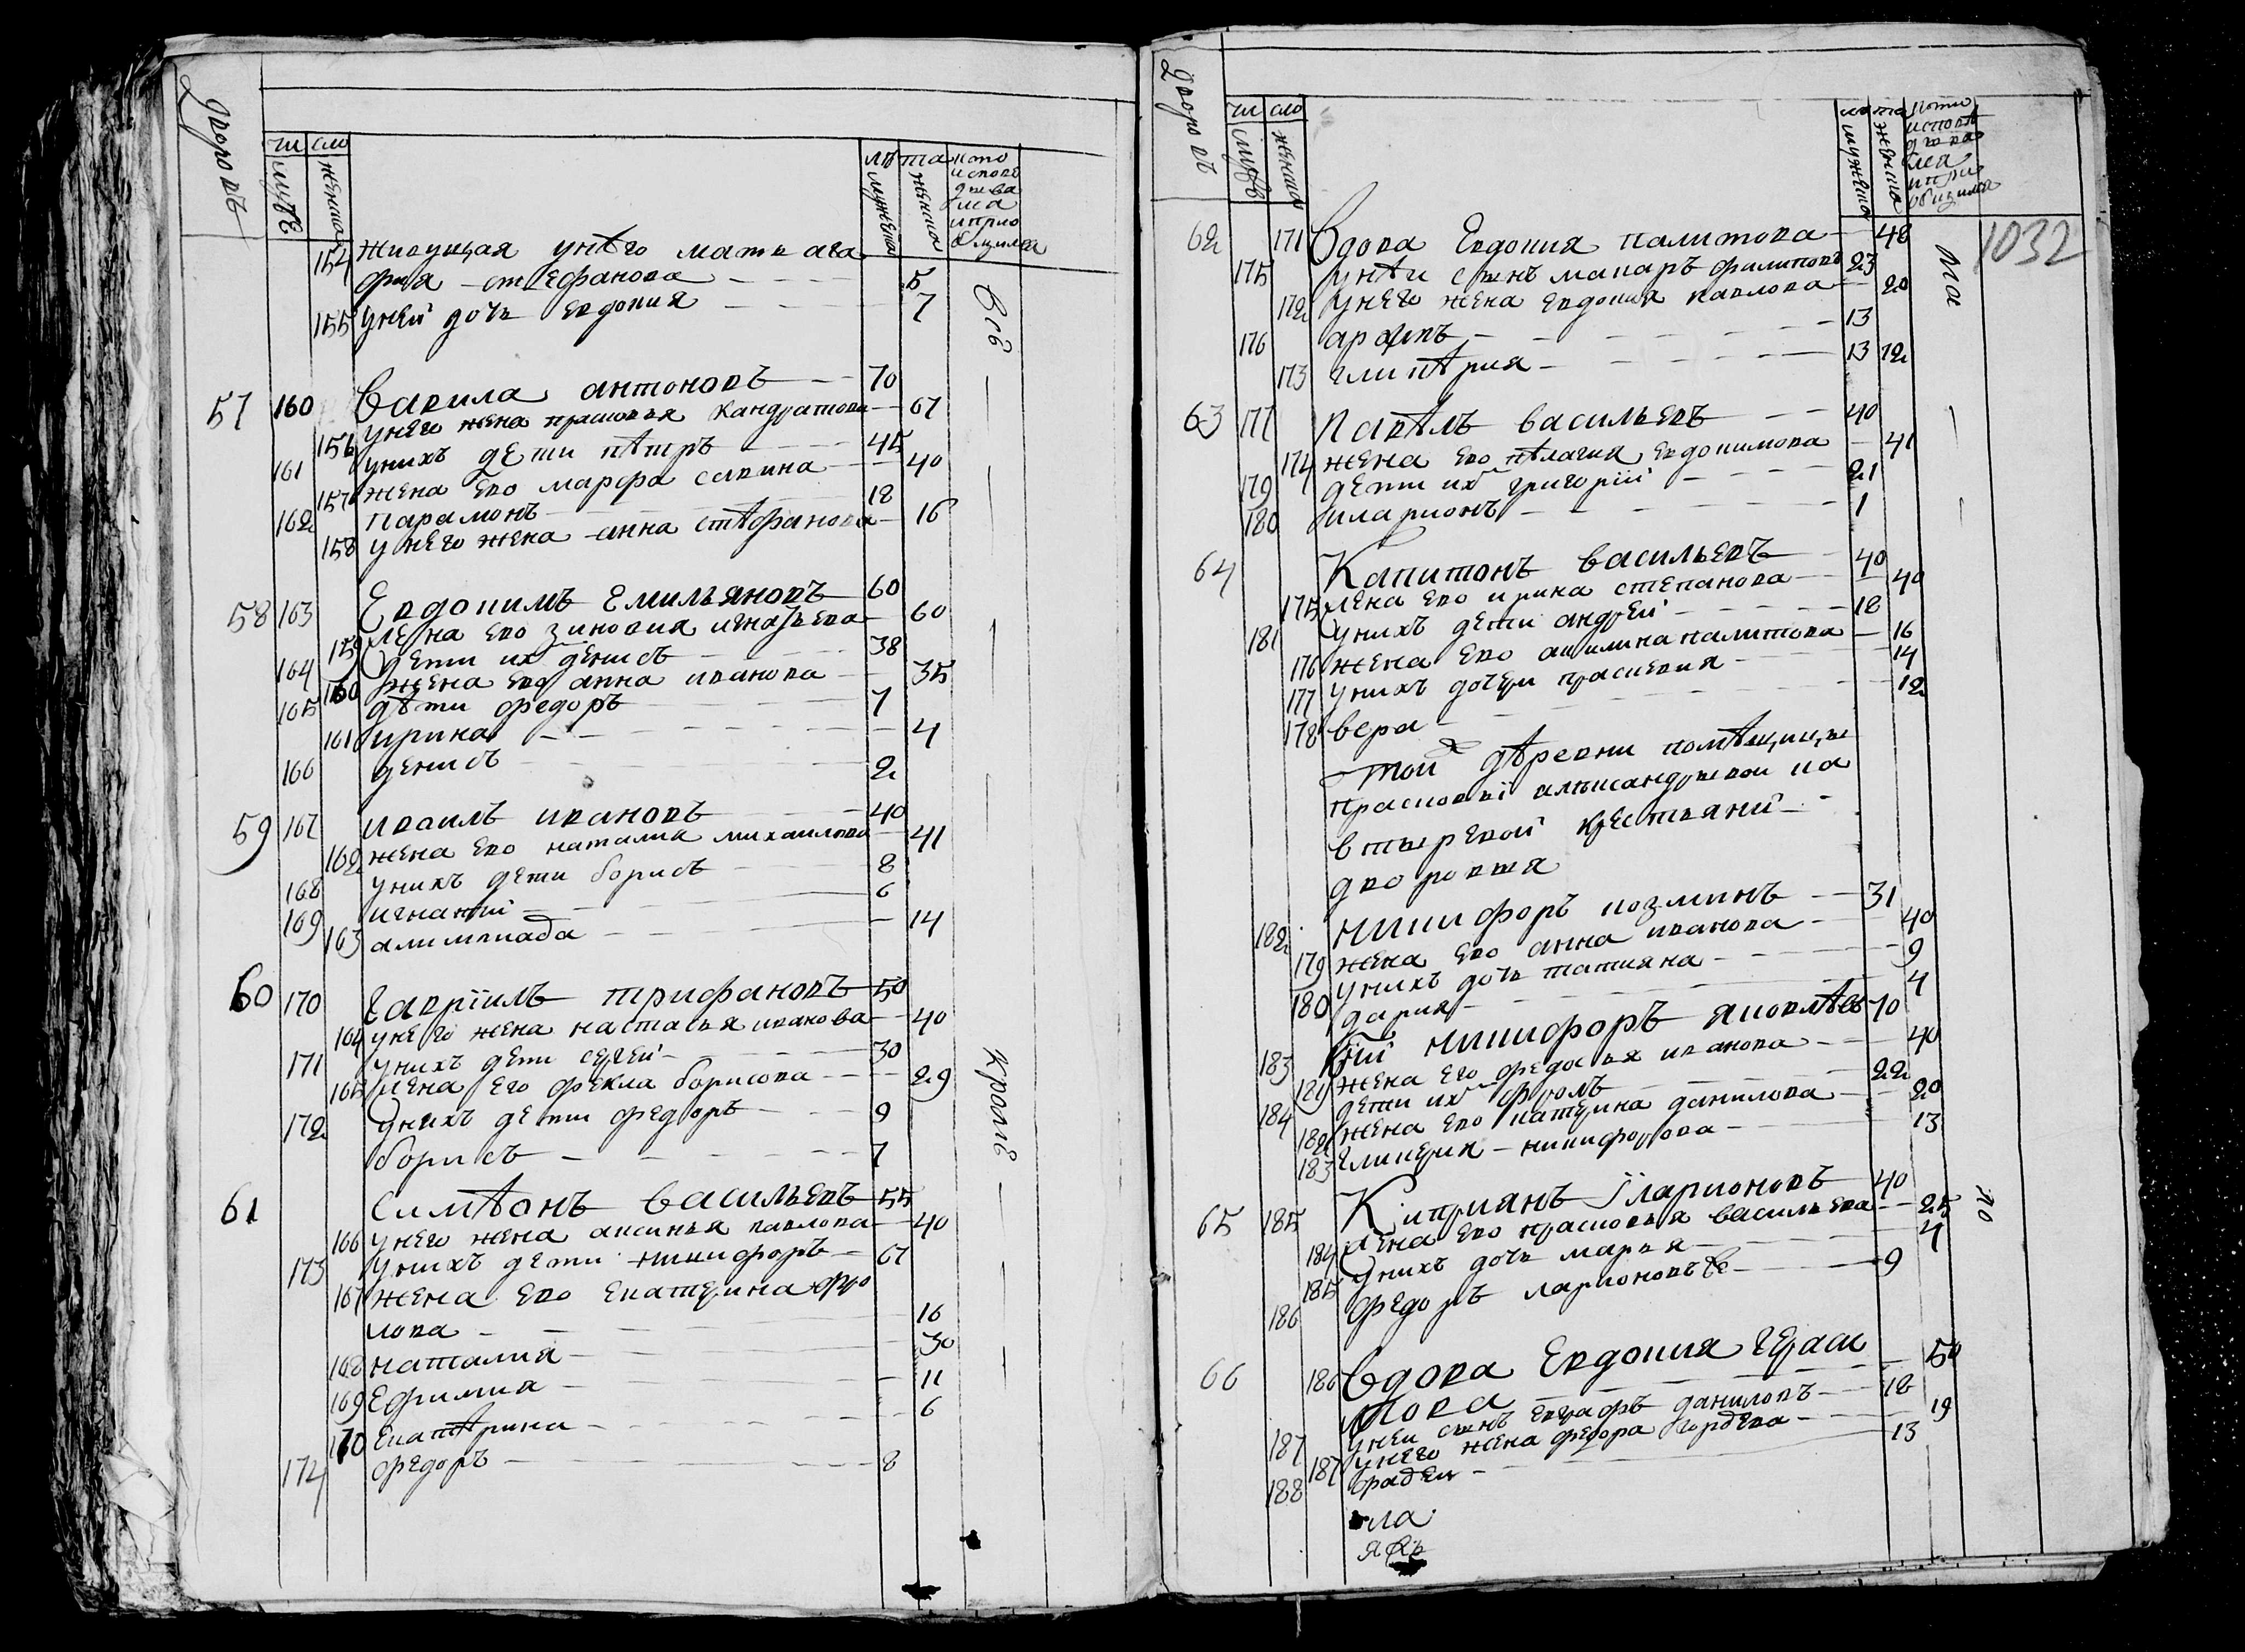 дворовъ
чи сло
мужě
женска
лѣ та
мужеска
женска
кто
испові
дыва
лса
иприо
бщился
154 живущая унѣго мать ага
фия стефанова 5
155 уней дочь евдокия 7
Всѣ
57 160 Вавила антоновъ 70
156 унего жена прасковья кандратова 67
161 унихъ дети пѣтръ 45
157 жена ево марфа савина 40
162 парамонъ 18
158 у него жена анна стѣфанова 16
58 163 Евдокимъ Емильяновъ 60
159 жена ево зиновия игнатьева 60
164 дети их денисъ 38
160 жена ево анна иванова 35
165 дѣти федоръ 7
161 ирина 4
166 денисъ 2
59 167 иваилъ ивановъ 40
162 жена ево наталиа михаилова 41
168 унихъ дети борисъ 8
169 игнатий 6
163 алимпиада 14
60 170 Гавріилъ трифановъ 50
164 унего жена настасья иванова 40
171 унихъ дети сергей 30
165 жена его фекла борисова 29
172 Унихъ дети федоръ 9
борисъ 7
Кромѣ
61 Симѣонъ васильевъ 55
166 унего жена аксинья павлова 40
173 унихъ дети никифоръ 67
167 жена ево екатерина фро
лова 16
168 наталия 30
169 Ефимия 11
170 Екатѣрина 6
174 федоръ 8
дворовъ
чи сло
женска
лѣ та
мужеска
женска
1032
62 171 Вдова Евдокия палитова 48
175 унѣи сынъ макаръ филиповъ 23
172 унего жена евдокия павлова 20
176 архипъ 13
173 гликѣрия 13 12
та
63 177 Павѣлъ васильевъ 40
174 жена ево пѣлагия евдокимова 41
179 дети их григорій 21
180 иларионъ 1
64 Капитонъ васильевъ 40
175 жена ево ирина степанова 40
181 Унихъ дети андрей 18
176 жена ево акилина палитова 16
177 унихъ дочери прасковия 14
178 вера 12
той дѣревни помѣщицы
прасковьі александровой на
втыревой крестьяни
дворовыя
182 никифоръ козминъ 31
179 жена ево анна иванова 40
180 унихъ дочь татияна 9
дария 4
183 никифоръ яковлѣв 70
181 жена его федосья иванова 40
184 дети их фролъ 22
182 жена ево катерина данилова 20
183 гликерия никифорова 13
65 185 Киприянъ іларионовъ 40
184 жена ево прасковья васильева 25
185 Унихъ дочь марья 4
186 федоръ ларионовъ 9
но
66 186 Вдова Евдокия гераси
мова 50
187 уней сынъ евграфъ даниловъ 18
187 унего жена федора гордева 19
188 фадеи 13
ла